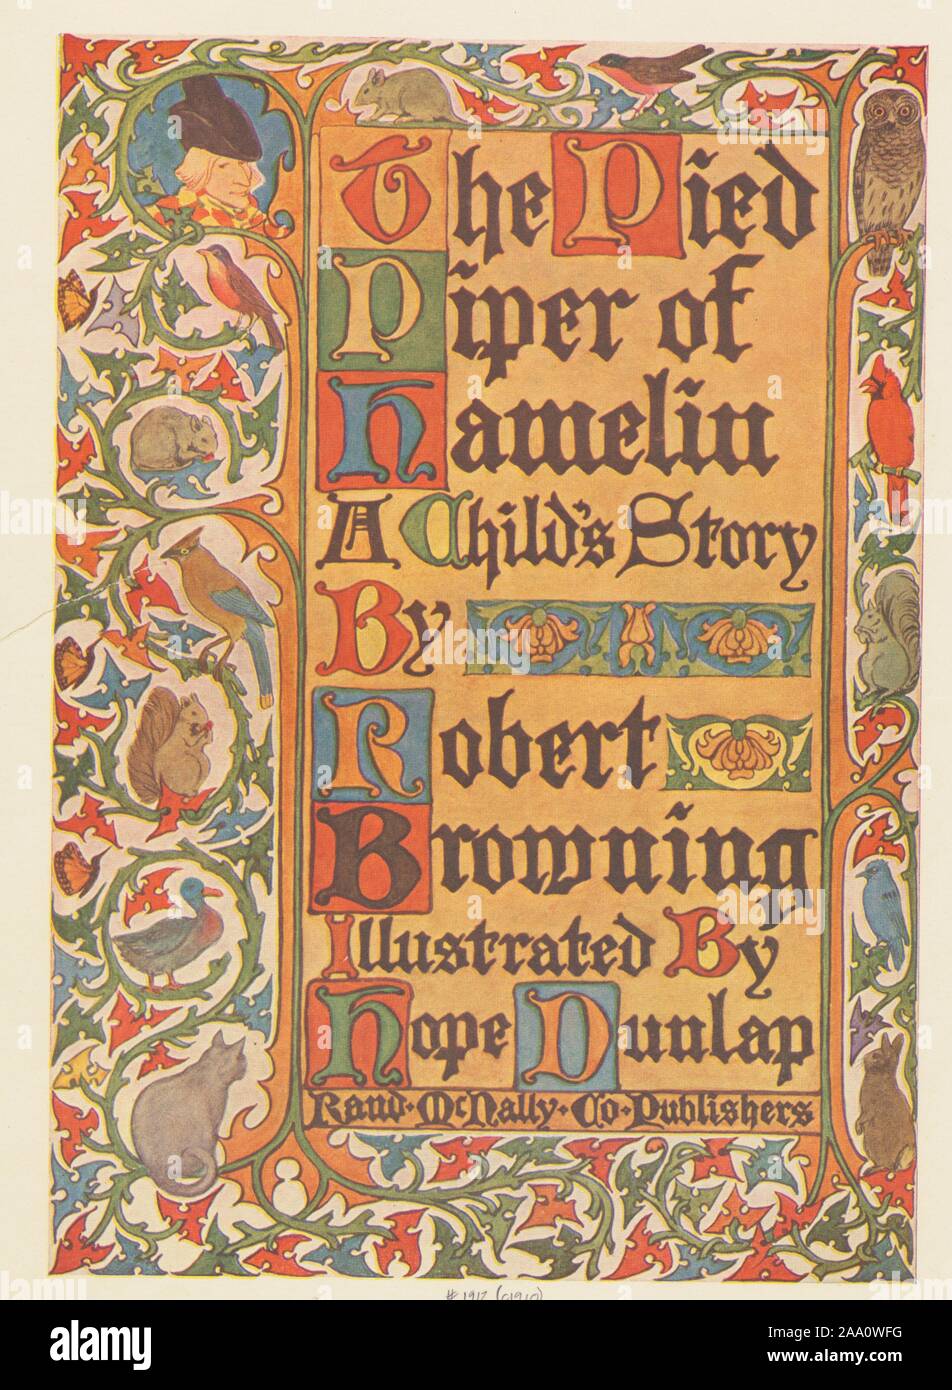 The Pied
Piper of
Hamelin
A Child's Story
By
Robert
Browning
Illustrated By
Hope Dunlap
Rand·McNally·Co·Publishers
# 1912 (c1910)
alamy
Image ID: 2AA0WFG
www.alamy.com